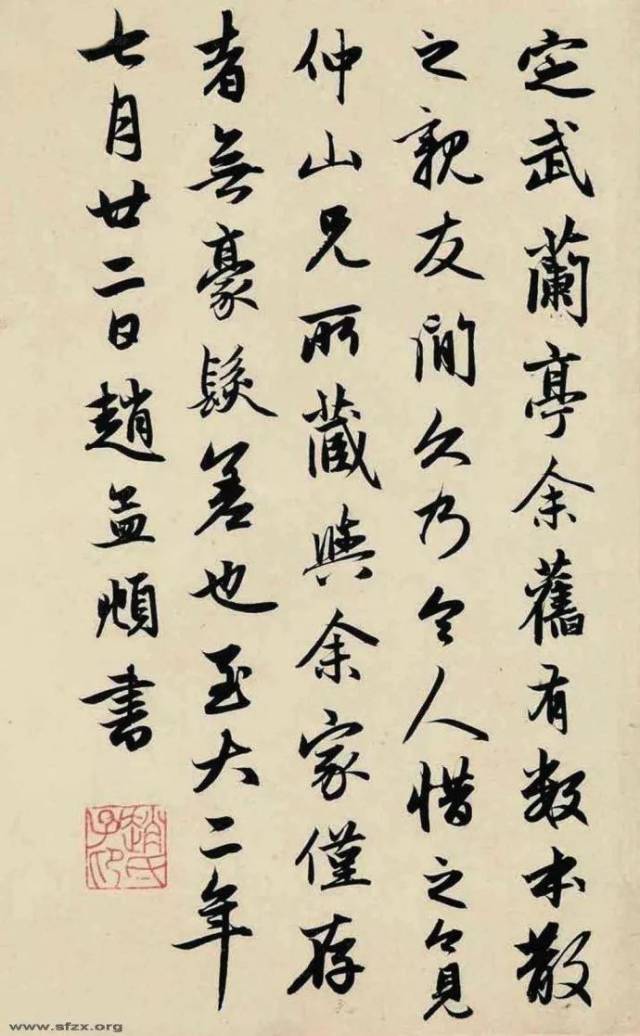 定武蘭亭余舊有數本散
之親友間久乃令人惜之今見
仲山兄所藏與余家僅存
者無豪髮差也至大二年
七月廿二日趙孟頫書
趙氏子昂
www.sfzx.org